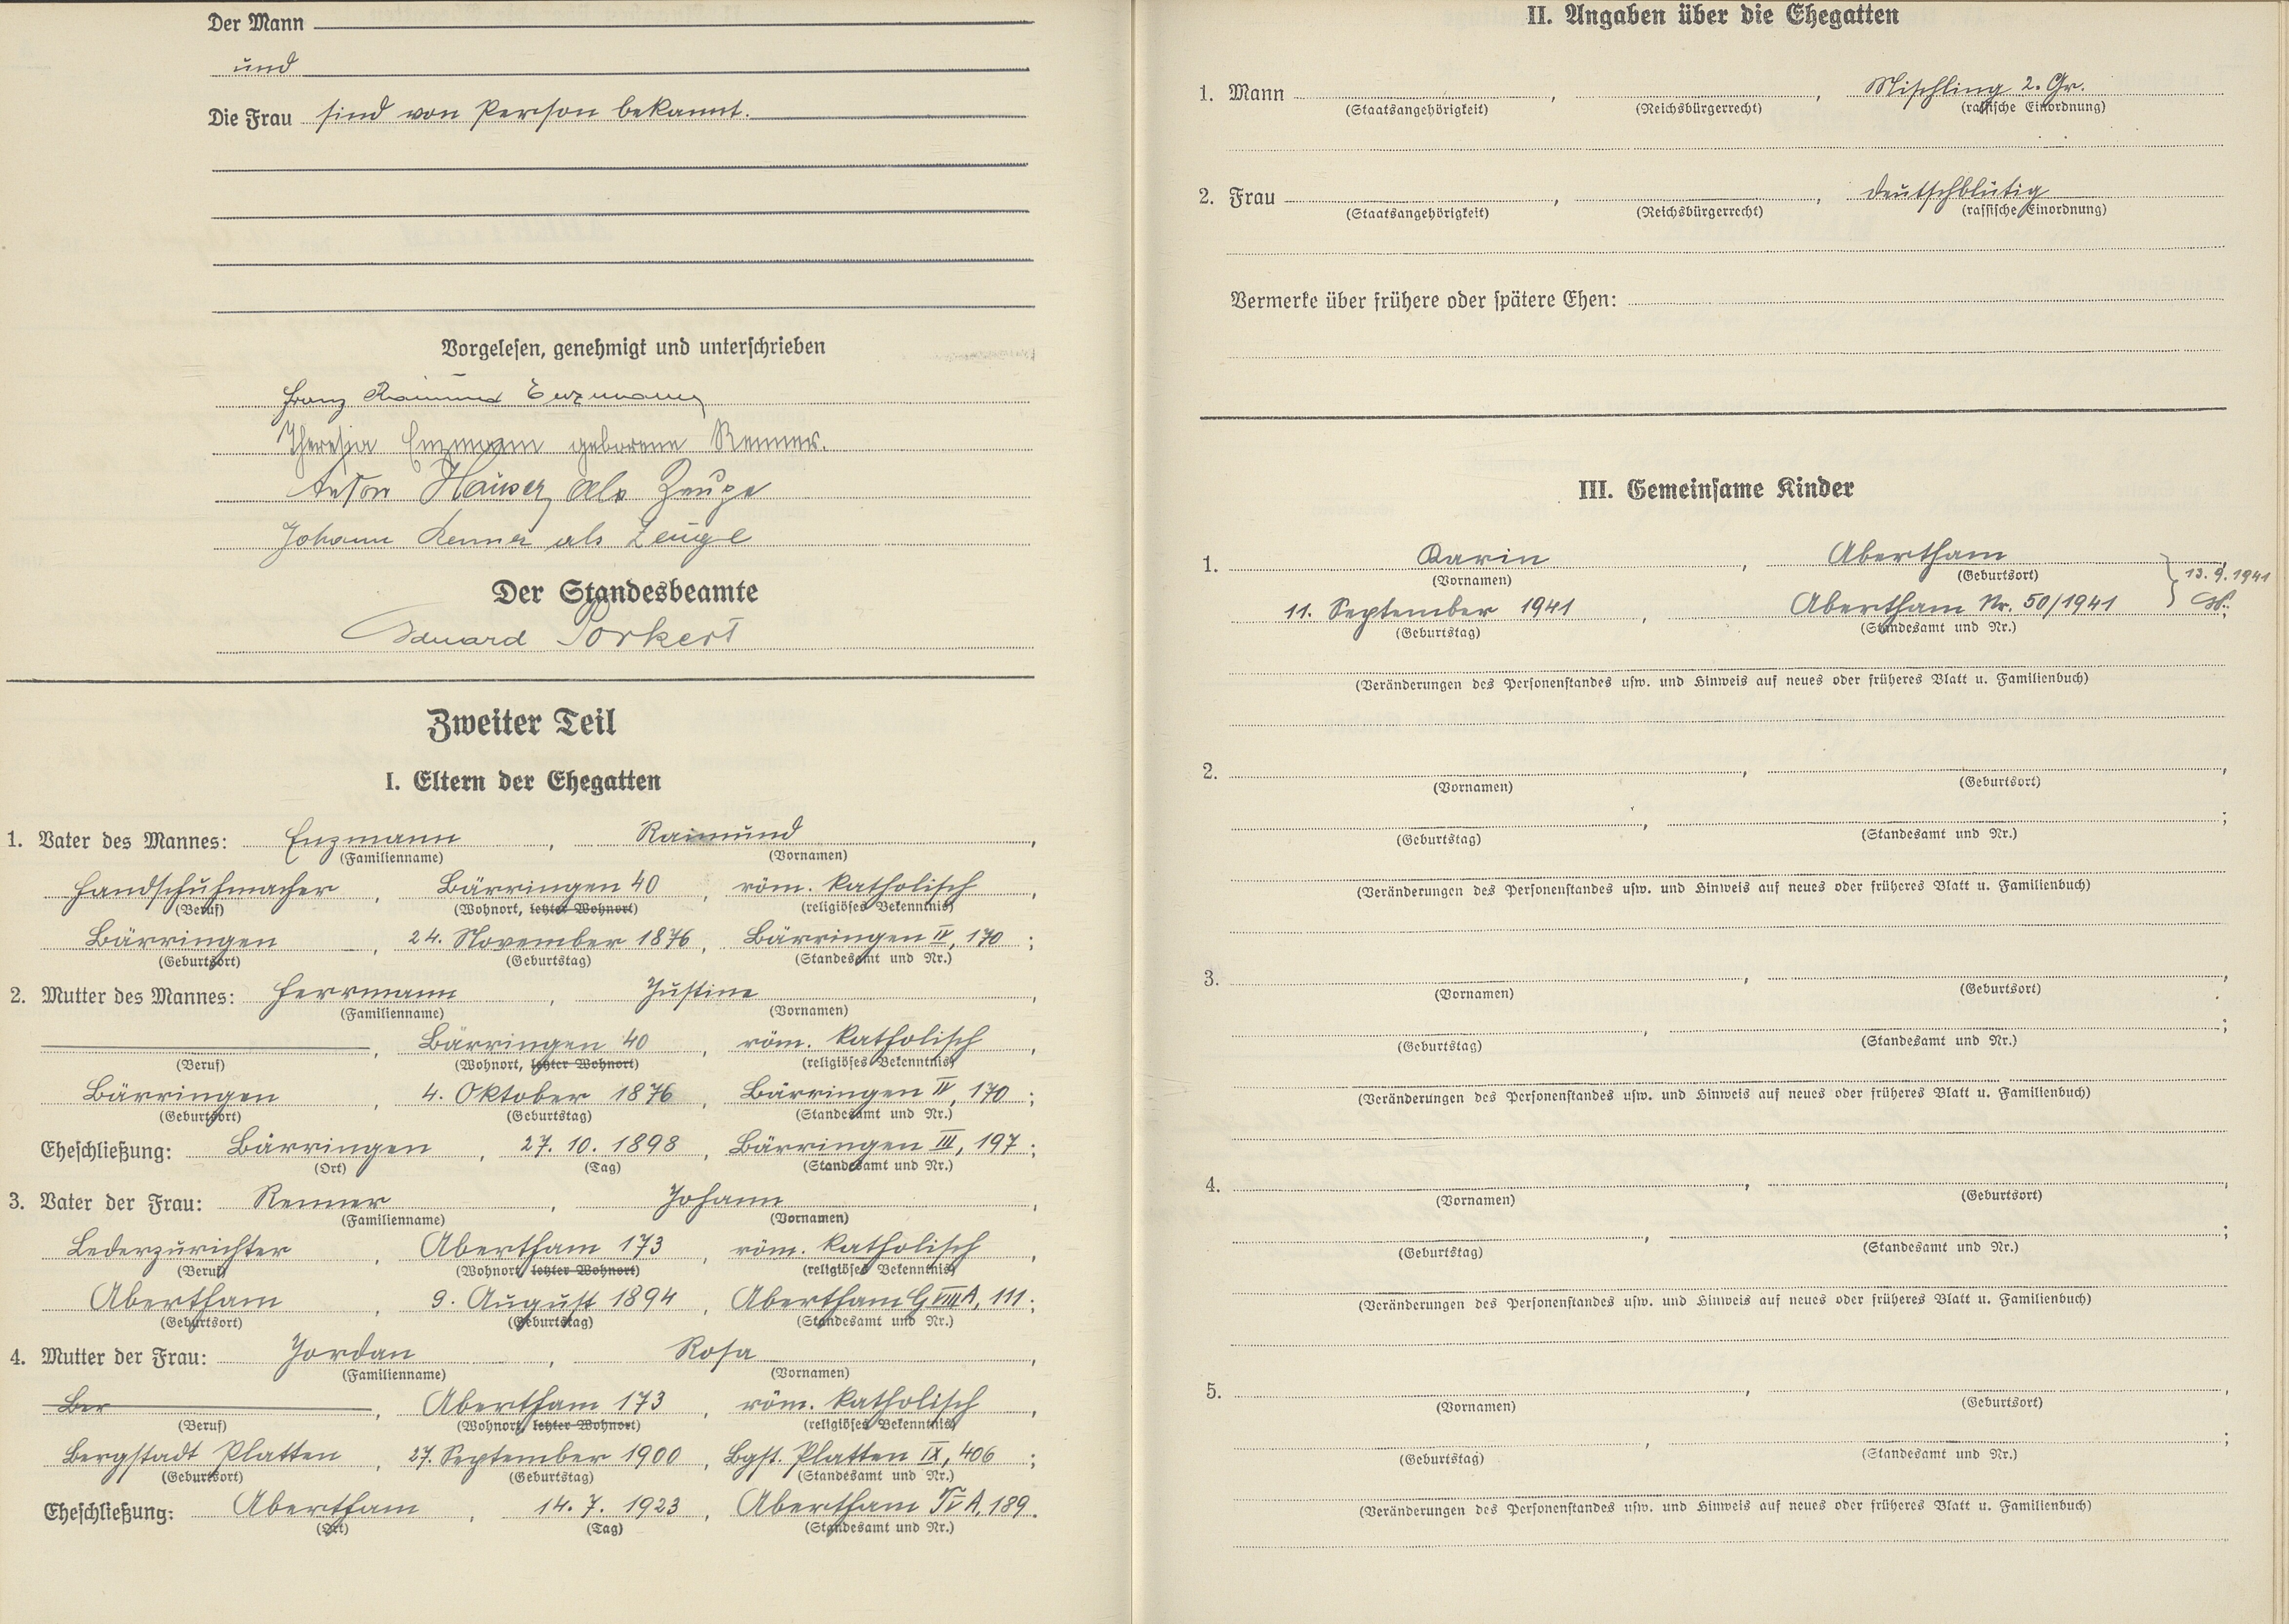 Der Mann
und
Die Frau sind von Person bekannt.
Vorgelesen, genehmigt und unterschrieben
Franz Raimund Enzmann
Theresia Enzmann geborene Renner.
Anton Hauser als Zeuge
Johann Renner als Zeuge
Der Standesbeamte
Eduard Porkert
Zweiter Teil
I. Eltern der Ehegatten
1. Vater des Mannes: Enzmann, Raimund,
(Familienname) (Vornamen)
Handschuhmacher, Bärringen 40, röm. katholisch,
(Beruf) (Wohnort, letzter Wohnort) (religiöses Bekenntnis)
Bärringen, 24. November 1876, Bärringen IV, 170;
(Geburtsort) (Geburtstag) (Standesamt und Nr.)
2. Mutter des Mannes: Herrmann, Justine,
(Familienname) (Vornamen)
, Bärringen 40, röm. katholisch,
(Beruf) (Wohnort, letzter Wohnort) (religiöses Bekenntnis)
Bärringen, 4. Oktober 1876, Bärringen IV, 170;
(Geburtsort) (Geburtstag) (Standesamt und Nr.)
Eheschließung: Bärringen, 27. 10. 1898, Bärringen III, 197;
(Ort) (Tag) (Standesamt und Nr.)
3. Vater der Frau: Renner, Johann,
(Familienname) (Vornamen)
Lederzurichter, Abertham 173, röm. katholisch,
(Beruf) (Wohnort, letzter Wohnort) (religiöses Bekenntnis)
Abertham, 9. August 1894, Abertham G VIII A, 111;
(Geburtsort) (Geburtstag) (Standesamt und Nr.)
4. Mutter der Frau: Jordan, Rosa,
(Familienname) (Vornamen)
Ber, Abertham 173, röm. katholisch,
(Beruf) (Wohnort, letzter Wohnort) (religiöses Bekenntnis)
Bergstadt Platten, 27. September 1900, Bgst. Platten IX, 406;
(Geburtsort) (Geburtstag) (Standesamt und Nr.)
Eheschließung: Abertham, 14. 7. 1923, Abertham A, 189.
(Ort) (Tag) (Standesamt und Nr.)
II. Angaben über die Ehegatten
1. Mann , , Mischling 2. Gr.
(Staatsangehörigkeit) (Reichsbürgerrecht) (rassische Einordnung)
2. Frau , , deutschblütig
(Staatsangehörigkeit) (Reichsbürgerrecht) (rassische Einordnung)
Vermerke über frühere oder spätere Ehen:
III. Gemeinsame Kinder
1. Karin, Abertham
(Vornamen) (Geburtsort) 13. 9. 1941
11. September 1941, Abertham Nr. 50/1941
(Geburtstag) (Standesamt und Nr.)
(Veränderungen des Personenstandes usw. und Hinweis auf neues oder früheres Blatt u. Familienbuch)
2. , ,
(Vornamen) (Geburtsort)
, ;
(Geburtstag) (Standesamt und Nr.)
(Veränderungen des Personenstandes usw. und Hinweis auf neues oder früheres Blatt u. Familienbuch)
3. , ,
(Vornamen) (Geburtsort)
, ;
(Geburtstag) (Standesamt und Nr.)
(Veränderungen des Personenstandes usw. und Hinweis auf neues oder früheres Blatt u. Familienbuch)
4. , ,
(Vornamen) (Geburtsort)
, ;
(Geburtstag) (Standesamt und Nr.)
(Veränderungen des Personenstandes usw. und Hinweis auf neues oder früheres Blatt u. Familienbuch)
5. , ,
(Vornamen) (Geburtsort)
, ;
(Geburtstag) (Standesamt und Nr.)
(Veränderungen des Personenstandes usw. und Hinweis auf neues oder früheres Blatt u. Familienbuch)